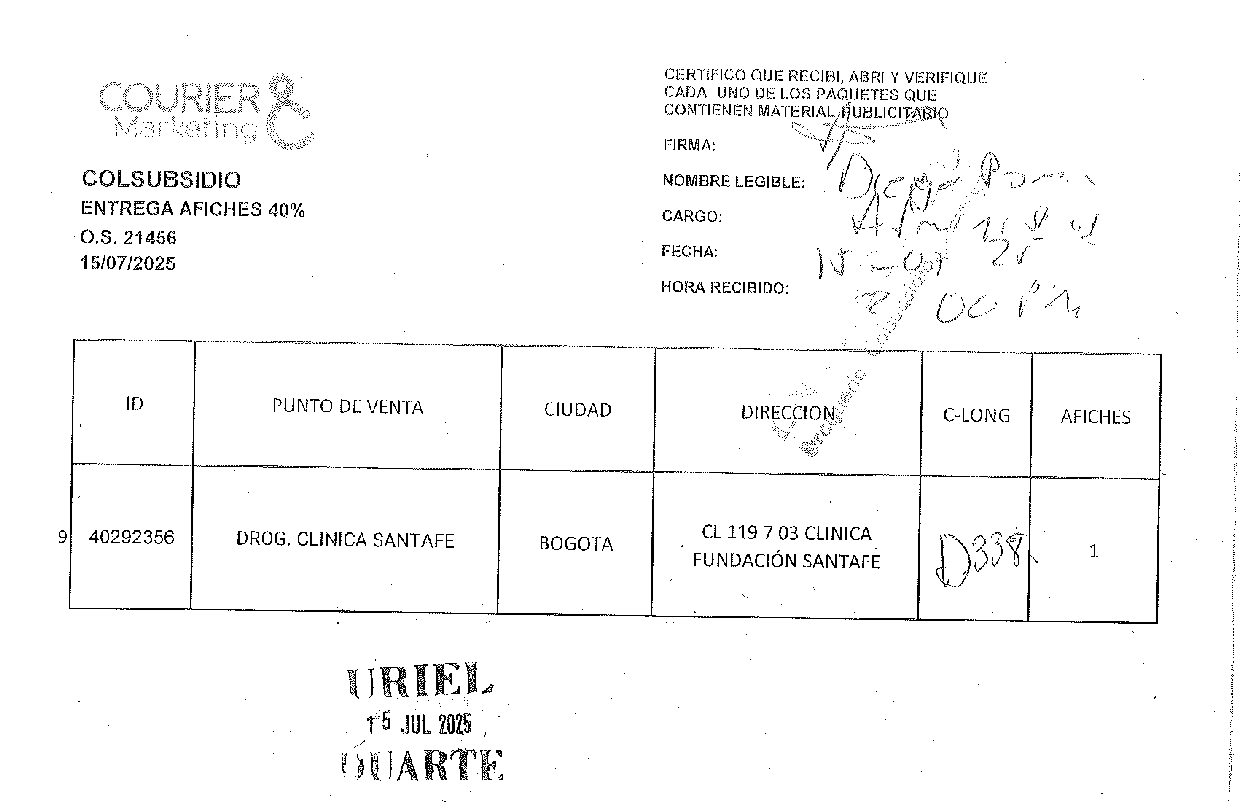 COURIER
Marketing
COLSUBSIDIO
ENTREGA AFICHES 40%
O.S. 21456
15/07/2025
CERTIFICO QUE RECIBI, ABRI Y VERIFIQUE
CADA UNO DE LOS PAQUETES QUE
CONTIENEN MATERIAL PUBLICITARIO
FIRMA:
NOMBRE LEGIBLE: Diego
CARGO:
FECHA: 15-07 25
HORA RECIBIDO: 2 00 PM
ID PUNTO DE VENTA CIUDAD DIRECCION C-LONG AFICHES
9 40292356 DROG. CLINICA SANTAFE BOGOTA CL 119 7 03 CLINICA FUNDACIÓN SANTAFE D338 1
URIEL
15 JUL 2025
DUARTE